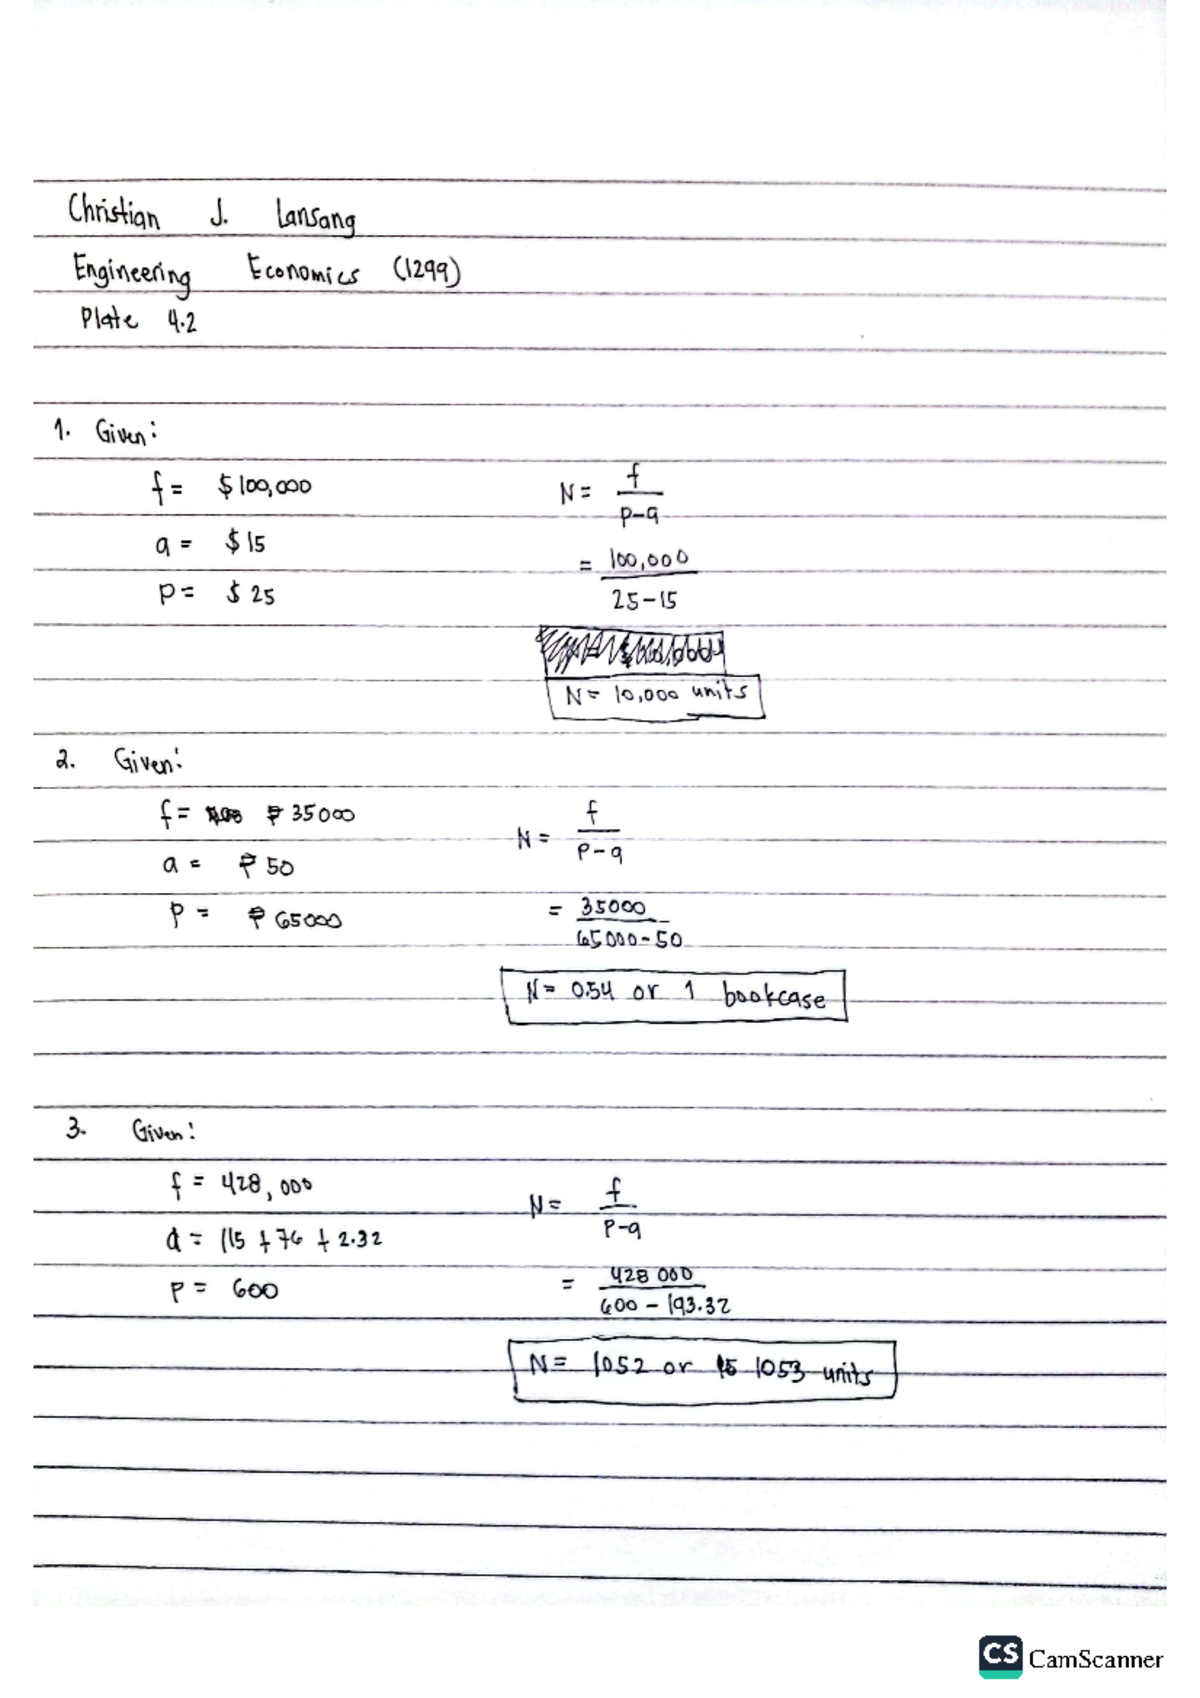 Christian J. Lansang
Engineering Economics (1299)
Plate 4.2
1. Given:
f = $100,000
a = $15
P = $25
N = f / P-a
= 100,000 / 25-15
N = 10,000 units
2. Given:
f = ₱35000
a = ₱50
P = ₱65000
N = f / P-a
= 35000 / 65000-50
N = 0.54 or 1 bookcase
3. Given:
f = 428,000
a = 115 + 76 + 2.32
P = 600
N = f / P-a
= 428 000 / 600 - 193.32
N = 1052 or 1053 units
CS CamScanner